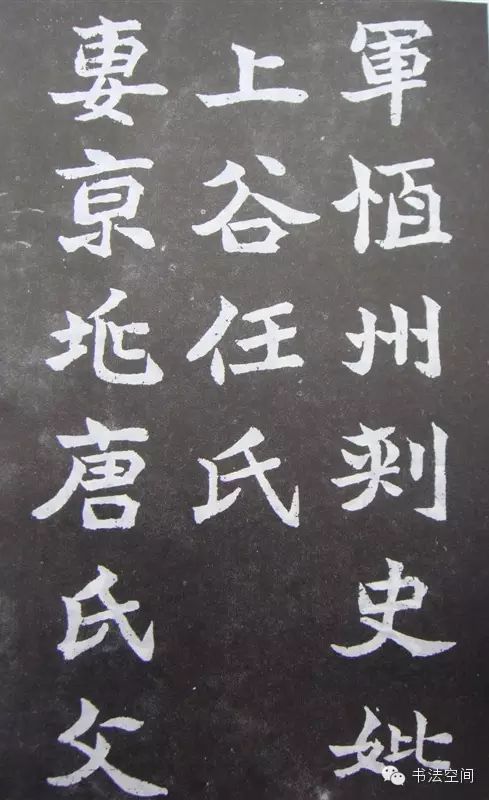 軍恒州刺史妣
上谷任氏
妻京兆唐氏父
书法空间